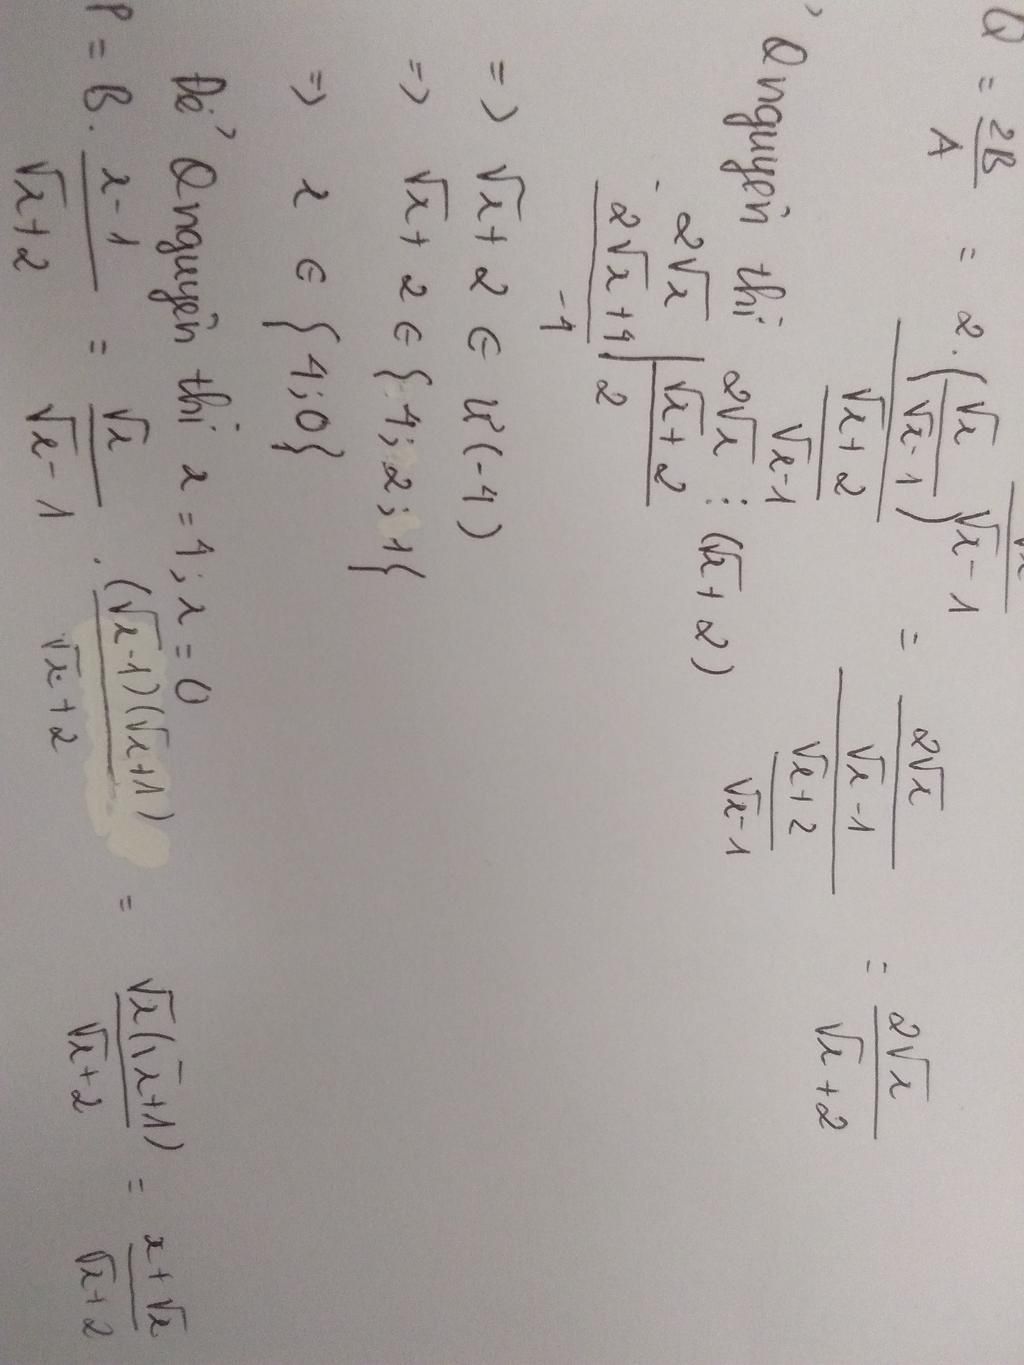 Q = 2B/A = 2.(√x/√x-1) / (√x+2/√x-1) = (2√x/√x-1) / (√x+2/√x-1) = 2√x/√x+2
Q nguyên thì 2√x ⋮ (√x+2)
2√x | √x+2
2√x+4 | 2
-4
=> √x+2 ∈ Ư(-4)
=> √x+2 ∈ {4;2;1}
=> x ∈ {4;0}
Để Q nguyên thì x=4; x=0
P = B. x-1/√x+2 = √x/√x-1 . (√x-1)(√x+1)/√x+2 = √x(√x+1)/√x+2 = x+√x/√x+2